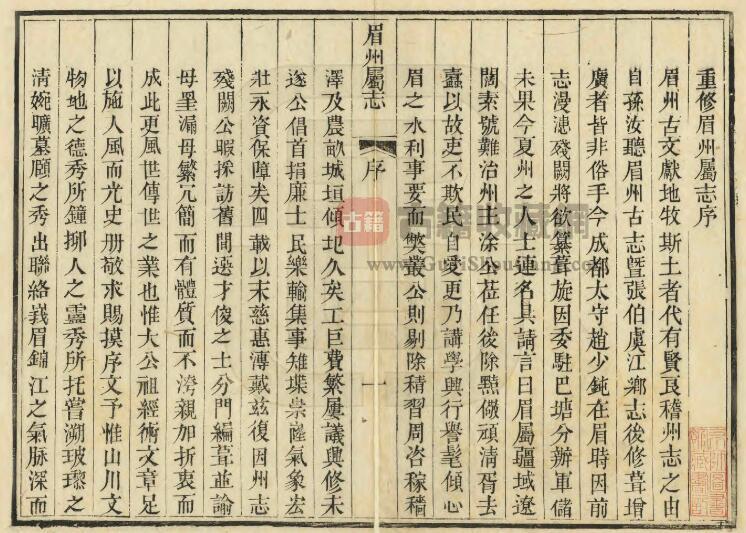 重修眉州屬志序
眉州古文獻地牧斯土者代有賢良稽州志之由
自孫汝聽眉州古志暨張伯虞江鄉志後修葺增
廣者皆非俗手今成都太守趙少鈍在眉時因前
志漫漶殘闕將欲纂葺旋因委駐巴塘分辦軍儲
未果今夏州之人士連名具請言曰眉屬疆域遼
闊素號難治州主涂公蒞任後除黠儆頑清胥去
蠹以故吏不欺民自愛更乃講學興行譽髦傾心
眉之水利事要而繁叢公則剔除積習周咨稼穡
眉州屬志
序
一
澤及農畝城垣傾圮久矣工巨費繁屢議興修未
遂公倡首捐廉士民樂輸集事雉堞崇隆氣象宏
壯永資保障矣四載以來慈惠溥戴茲復因州志
殘闕公暇採訪舊聞選才俊之士分門編葺並諭
毋墨漏毋繁冗簡而有體質而不滂親加折衷而
成此更風世傳世之業也惟大公祖經術文章足
以施人風而光史册敬求賜摸序文予惟山川文
物地之德秀所鐘挪人之靈秀所托嘗溯玻瓈之
清婉曠墓頤之秀出聯絡峩眉錦江之氣脉深而
古籍
古籍收藏網
www.GuJiShouCang.com